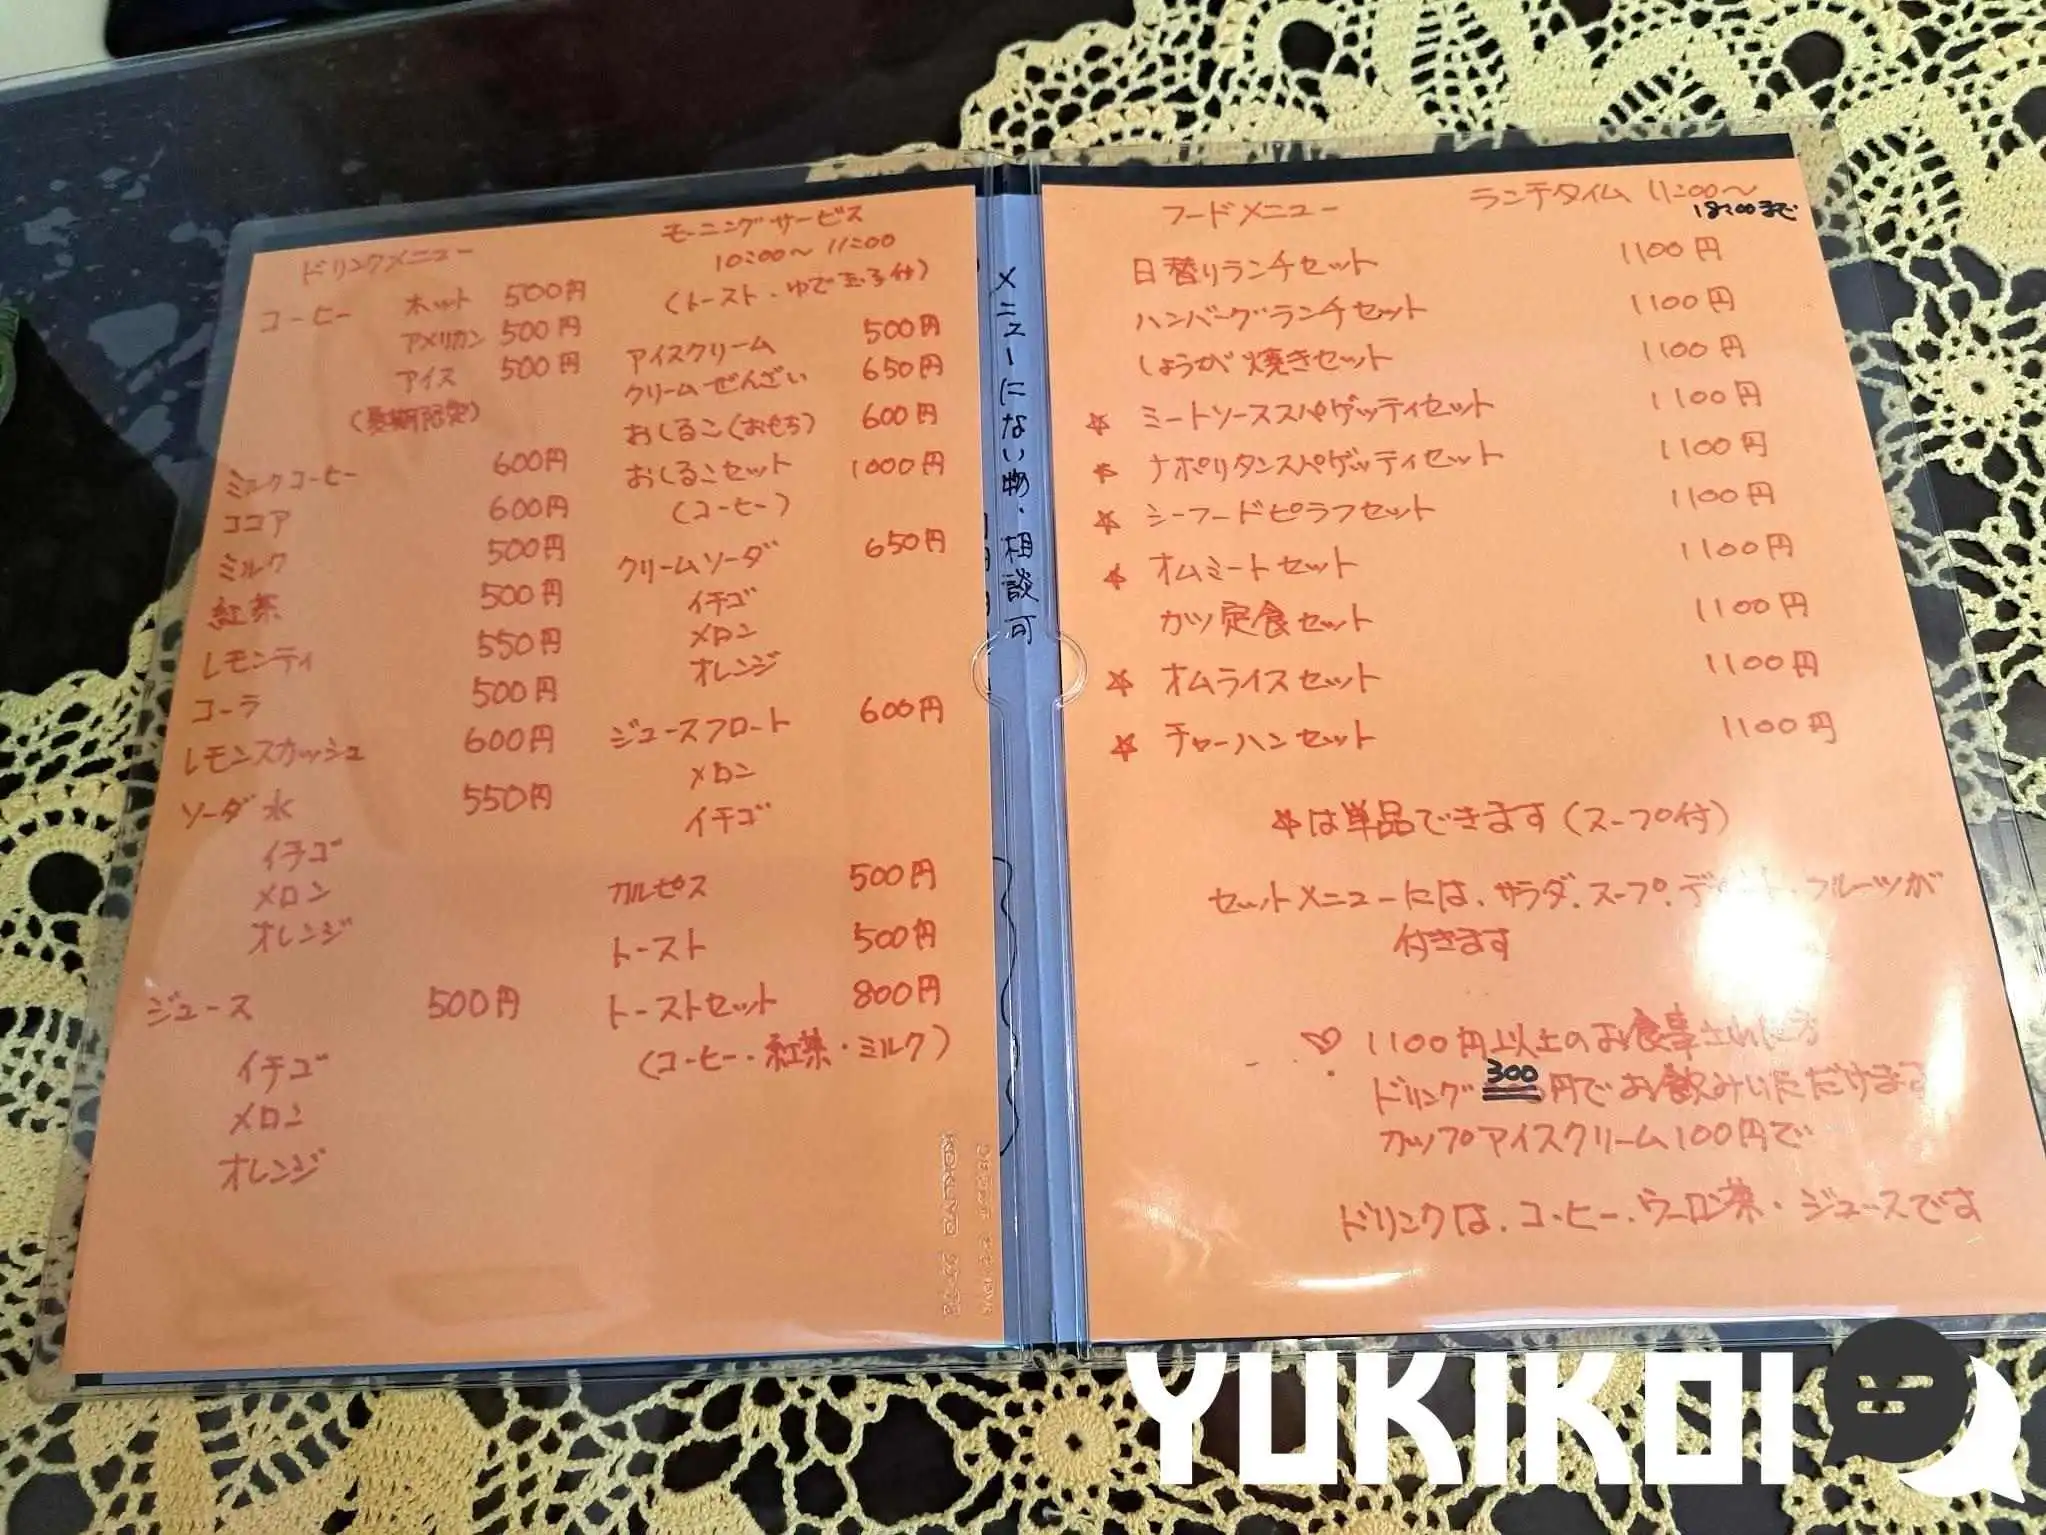 ドリンクメニュー
コーヒー ホット 500円
アメリカン 500円
アイス 500円
(夏期限定)
ミルクコーヒー 600円
ココア 600円
ミルク 500円
紅茶 500円
レモンティ 550円
コーラ 500円
レモンスカッシュ 600円
ソーダ水 550円
イチゴ
メロン
オレンジ
ジュース 500円
イチゴ
メロン
オレンジ
モーニングサービス
10:00〜11:00
(トースト・ゆで玉子付)
アイスクリーム 500円
クリームぜんざい 650円
おしるこ(おもち) 600円
おしるこセット 1000円
(コーヒー)
クリームソーダ 650円
イチゴ
メロン
オレンジ
ジュースフロート 600円
メロン
イチゴ
カルピス 500円
トースト 500円
トーストセット 800円
(コーヒー・紅茶・ミルク)
メニューにない物・相談可
フードメニュー ランチタイム 11:00〜
18:00まで
日替りランチセット 1100円
ハンバーグランチセット 1100円
しょうが焼きセット 1100円
☆ ミートソーススパゲッティセット 1100円
☆ ナポリタンスパゲッティセット 1100円
☆ シーフードピラフセット 1100円
☆ オムミートセット 1100円
カツ定食セット 1100円
☆ オムライスセット 1100円
☆ チャーハンセット 1100円
☆は単品できます(スープ付)
セットメニューには、サラダ、スープ、デザート・フルーツが
付きます
♡ 1100円以上のお食事された方
ドリンク300円でお飲みいただけます
カップアイスクリーム100円で
ドリンクは、コーヒー、ウーロン茶・ジュースです
YUKIKOI